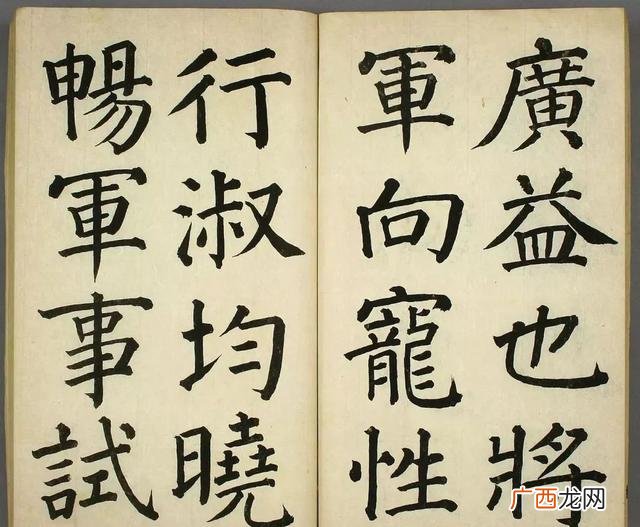 廣益也將
軍向寵性
行淑均曉
暢軍事試
广西龙网